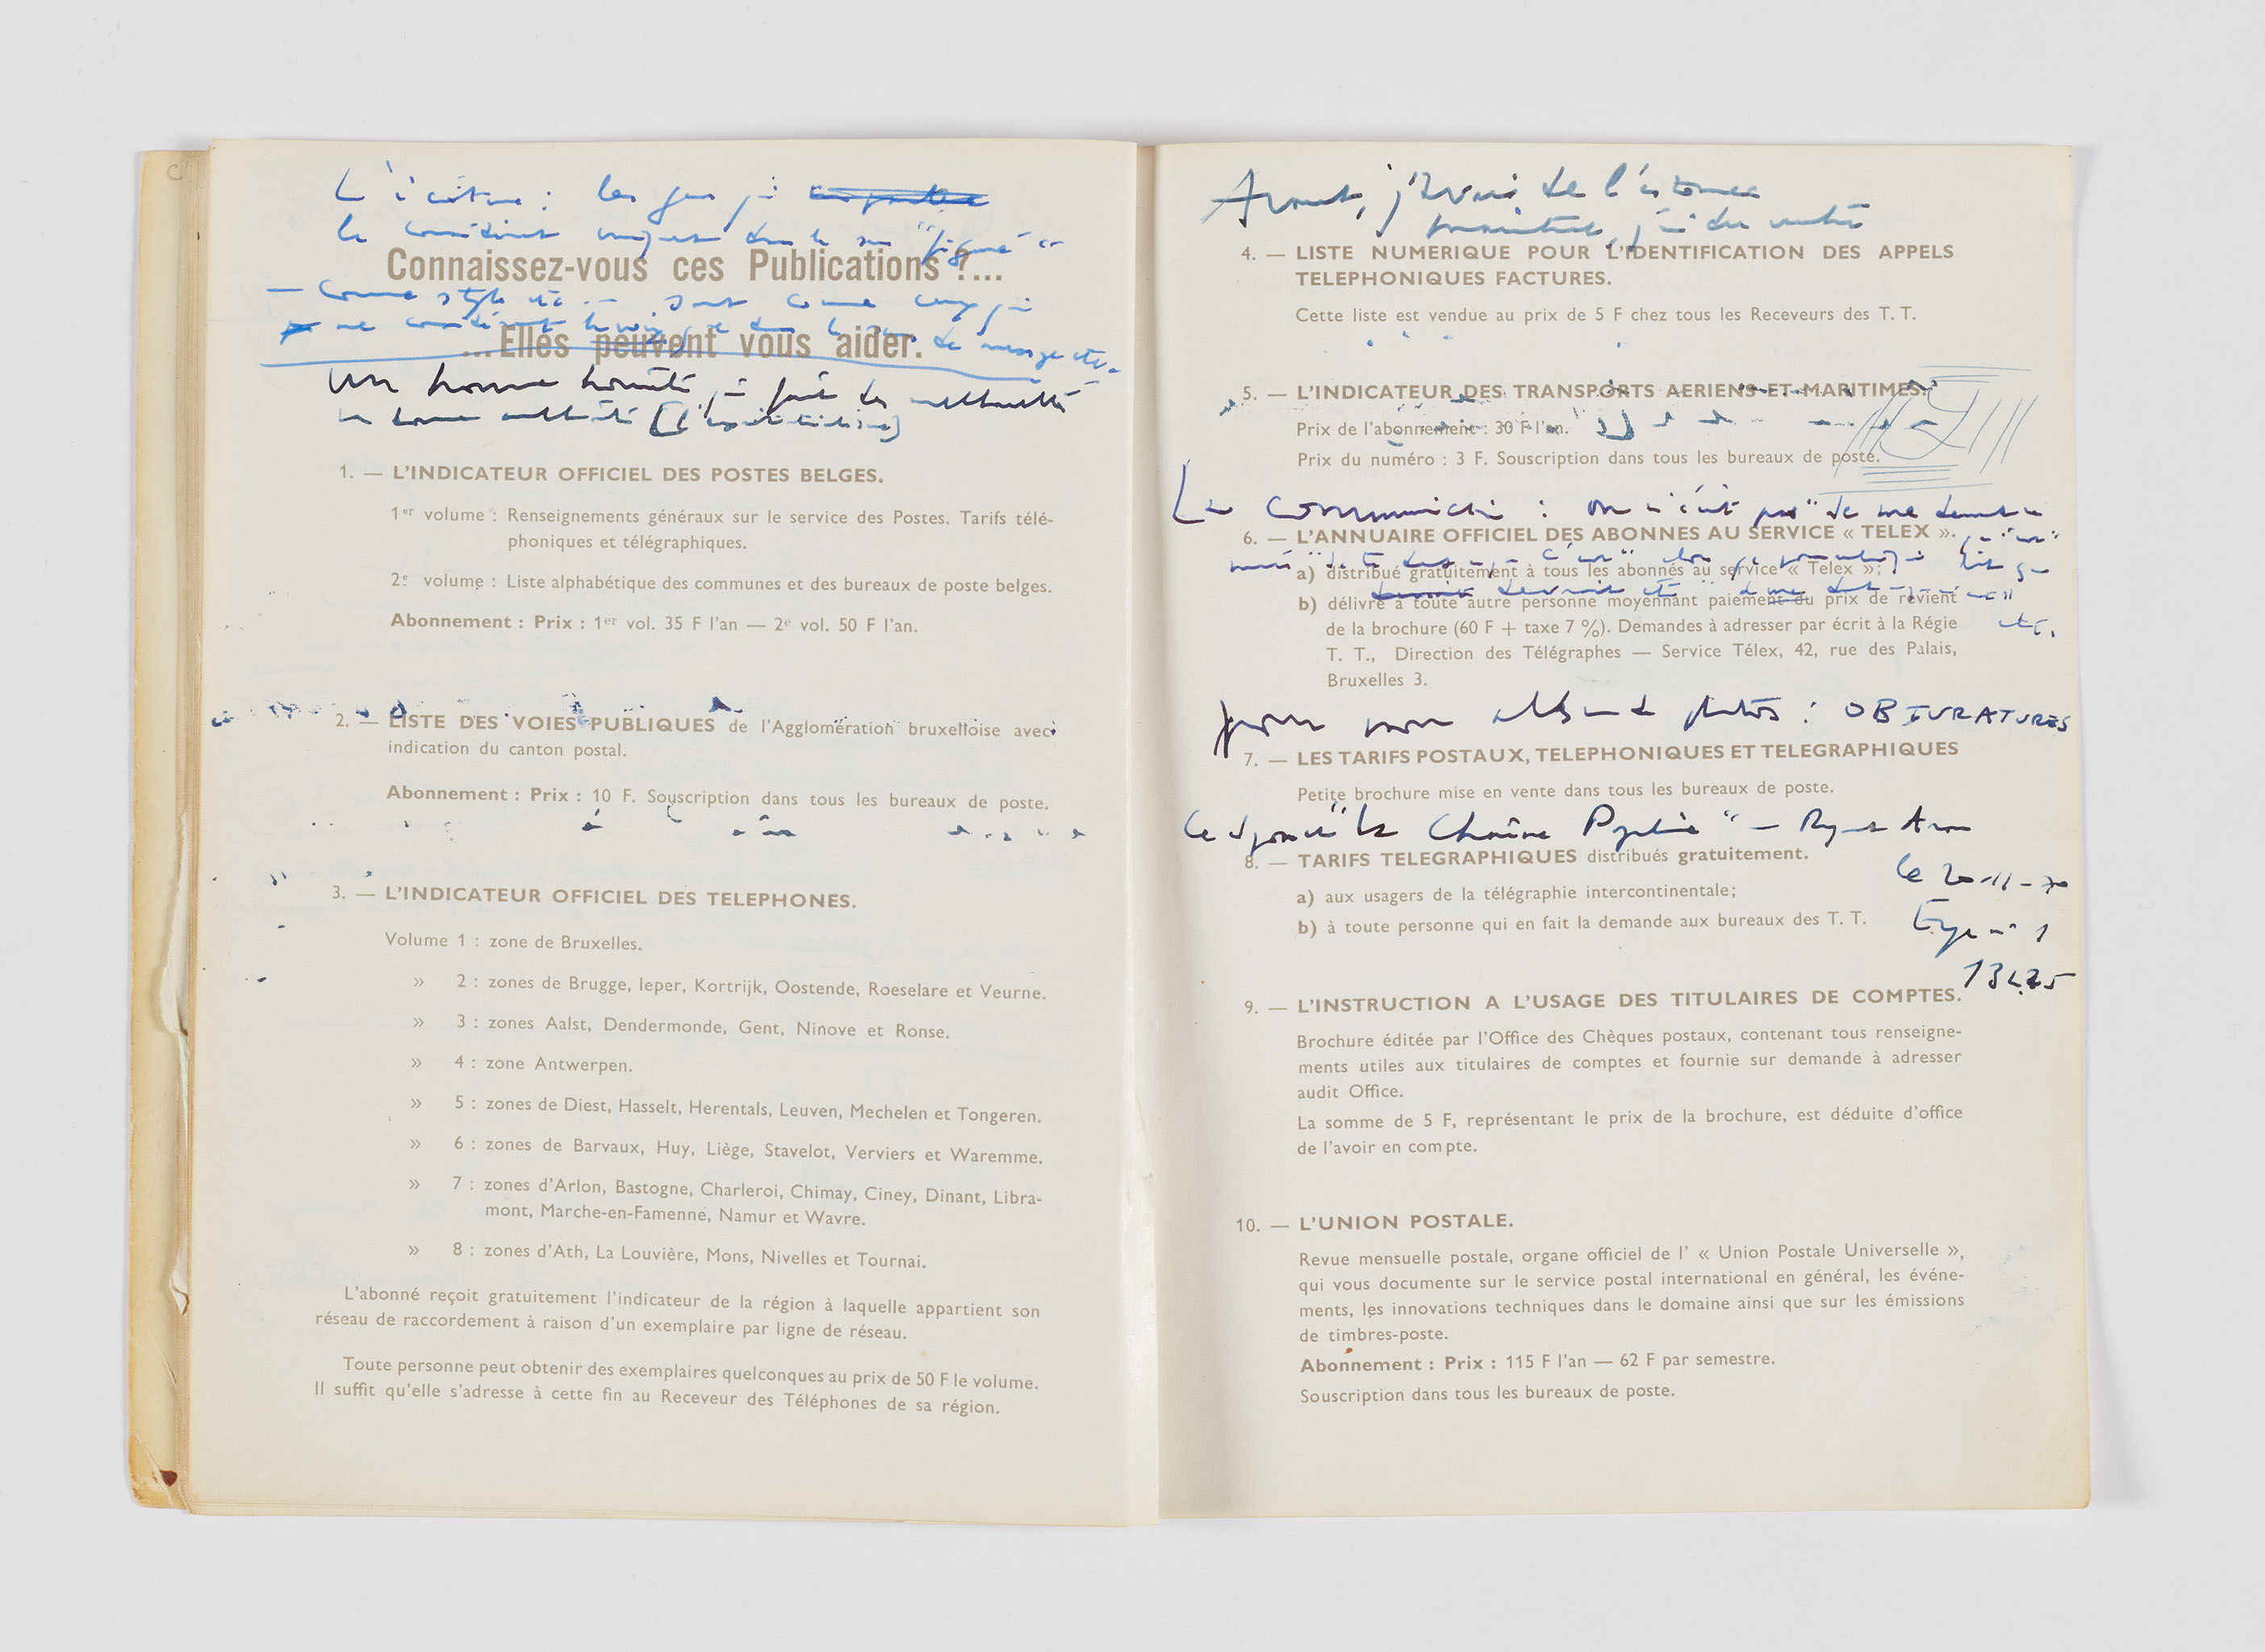 L'écriture : les gens qui
le considèrent uniquement dans le sens "figuré"
Connaissez-vous ces Publications ?...
— comme style etc... sont comme ceux qui
ne considèrent que dans le sens de message etc.
...Elles peuvent vous aider.
Un homme honnête, qui fait des malhonnêtetés
un homme malhonnête
1. — L'INDICATEUR OFFICIEL DES POSTES BELGES.
1er volume : Renseignements généraux sur le service des Postes. Tarifs télé-
phoniques et télégraphiques.
2e volume : Liste alphabétique des communes et des bureaux de poste belges.
Abonnement : Prix : 1er vol. 35 F l'an — 2e vol. 50 F l'an.
2. — LISTE DES VOIES PUBLIQUES de l'Agglomération bruxelloise avec
indication du canton postal.
Abonnement : Prix : 10 F. Souscription dans tous les bureaux de poste.
3. — L'INDICATEUR OFFICIEL DES TELEPHONES.
Volume 1 : zone de Bruxelles.
» 2 : zones de Brugge, Ieper, Kortrijk, Oostende, Roeselare et Veurne.
» 3 : zones Aalst, Dendermonde, Gent, Ninove et Ronse.
» 4 : zone Antwerpen.
» 5 : zones de Diest, Hasselt, Herentals, Leuven, Mechelen et Tongeren.
» 6 : zones de Barvaux, Huy, Liège, Stavelot, Verviers et Waremme.
» 7 : zones d'Arlon, Bastogne, Charleroi, Chimay, Ciney, Dinant, Libra-
mont, Marche-en-Famenne, Namur et Wavre.
» 8 : zones d'Ath, La Louvière, Mons, Nivelles et Tournai.
L'abonné reçoit gratuitement l'indicateur de la région à laquelle appartient son
réseau de raccordement à raison d'un exemplaire par ligne de réseau.
Toute personne peut obtenir des exemplaires quelconques au prix de 50 F le volume.
Il suffit qu'elle s'adresse à cette fin au Receveur des Téléphones de sa région.
Avant, j'avais de l'estomac
maintenant, j'ai du ventre
4. — LISTE NUMERIQUE POUR L'IDENTIFICATION DES APPELS
TELEPHONIQUES FACTURES.
Cette liste est vendue au prix de 5 F chez tous les Receveurs des T. T.
5. — L'INDICATEUR DES TRANSPORTS AERIENS ET MARITIMES.
Prix de l'abonnement : 30 F l'an.
Prix du numéro : 3 F. Souscription dans tous les bureaux de poste.
La communication : on n'écrit pas "je me demande
6. — L'ANNUAIRE OFFICIEL DES ABONNES AU SERVICE « TELEX ».
a) distribué gratuitement à tous les abonnés au service « Telex »;
b) délivré à toute autre personne moyennant paiement du prix de revient
etc.
de la brochure (60 F + taxe 7 %). Demandes à adresser par écrit à la Régie
T. T., Direction des Télégraphes — Service Télex, 42, rue des Palais,
Bruxelles 3.
pour mon album de photos : OBTURATURES
7. — LES TARIFS POSTAUX, TELEPHONIQUES ET TELEGRAPHIQUES
Petite brochure mise en vente dans tous les bureaux de poste.
8. — TARIFS TELEGRAPHIQUES distribués gratuitement.
le 20-11-70
a) aux usagers de la télégraphie intercontinentale;
b) à toute personne qui en fait la demande aux bureaux des T. T.
9. — L'INSTRUCTION A L'USAGE DES TITULAIRES DE COMPTES.
Brochure éditée par l'Office des Chèques postaux, contenant tous renseigne-
ments utiles aux titulaires de comptes et fournie sur demande à adresser
audit Office.
La somme de 5 F, représentant le prix de la brochure, est déduite d'office
de l'avoir en compte.
10. — L'UNION POSTALE.
Revue mensuelle postale, organe officiel de l' « Union Postale Universelle »,
qui vous documente sur le service postal international en général, les événe-
ments, les innovations techniques dans le domaine ainsi que sur les émissions
de timbres-poste.
Abonnement : Prix : 115 F l'an — 62 F par semestre.
Souscription dans tous les bureaux de poste.